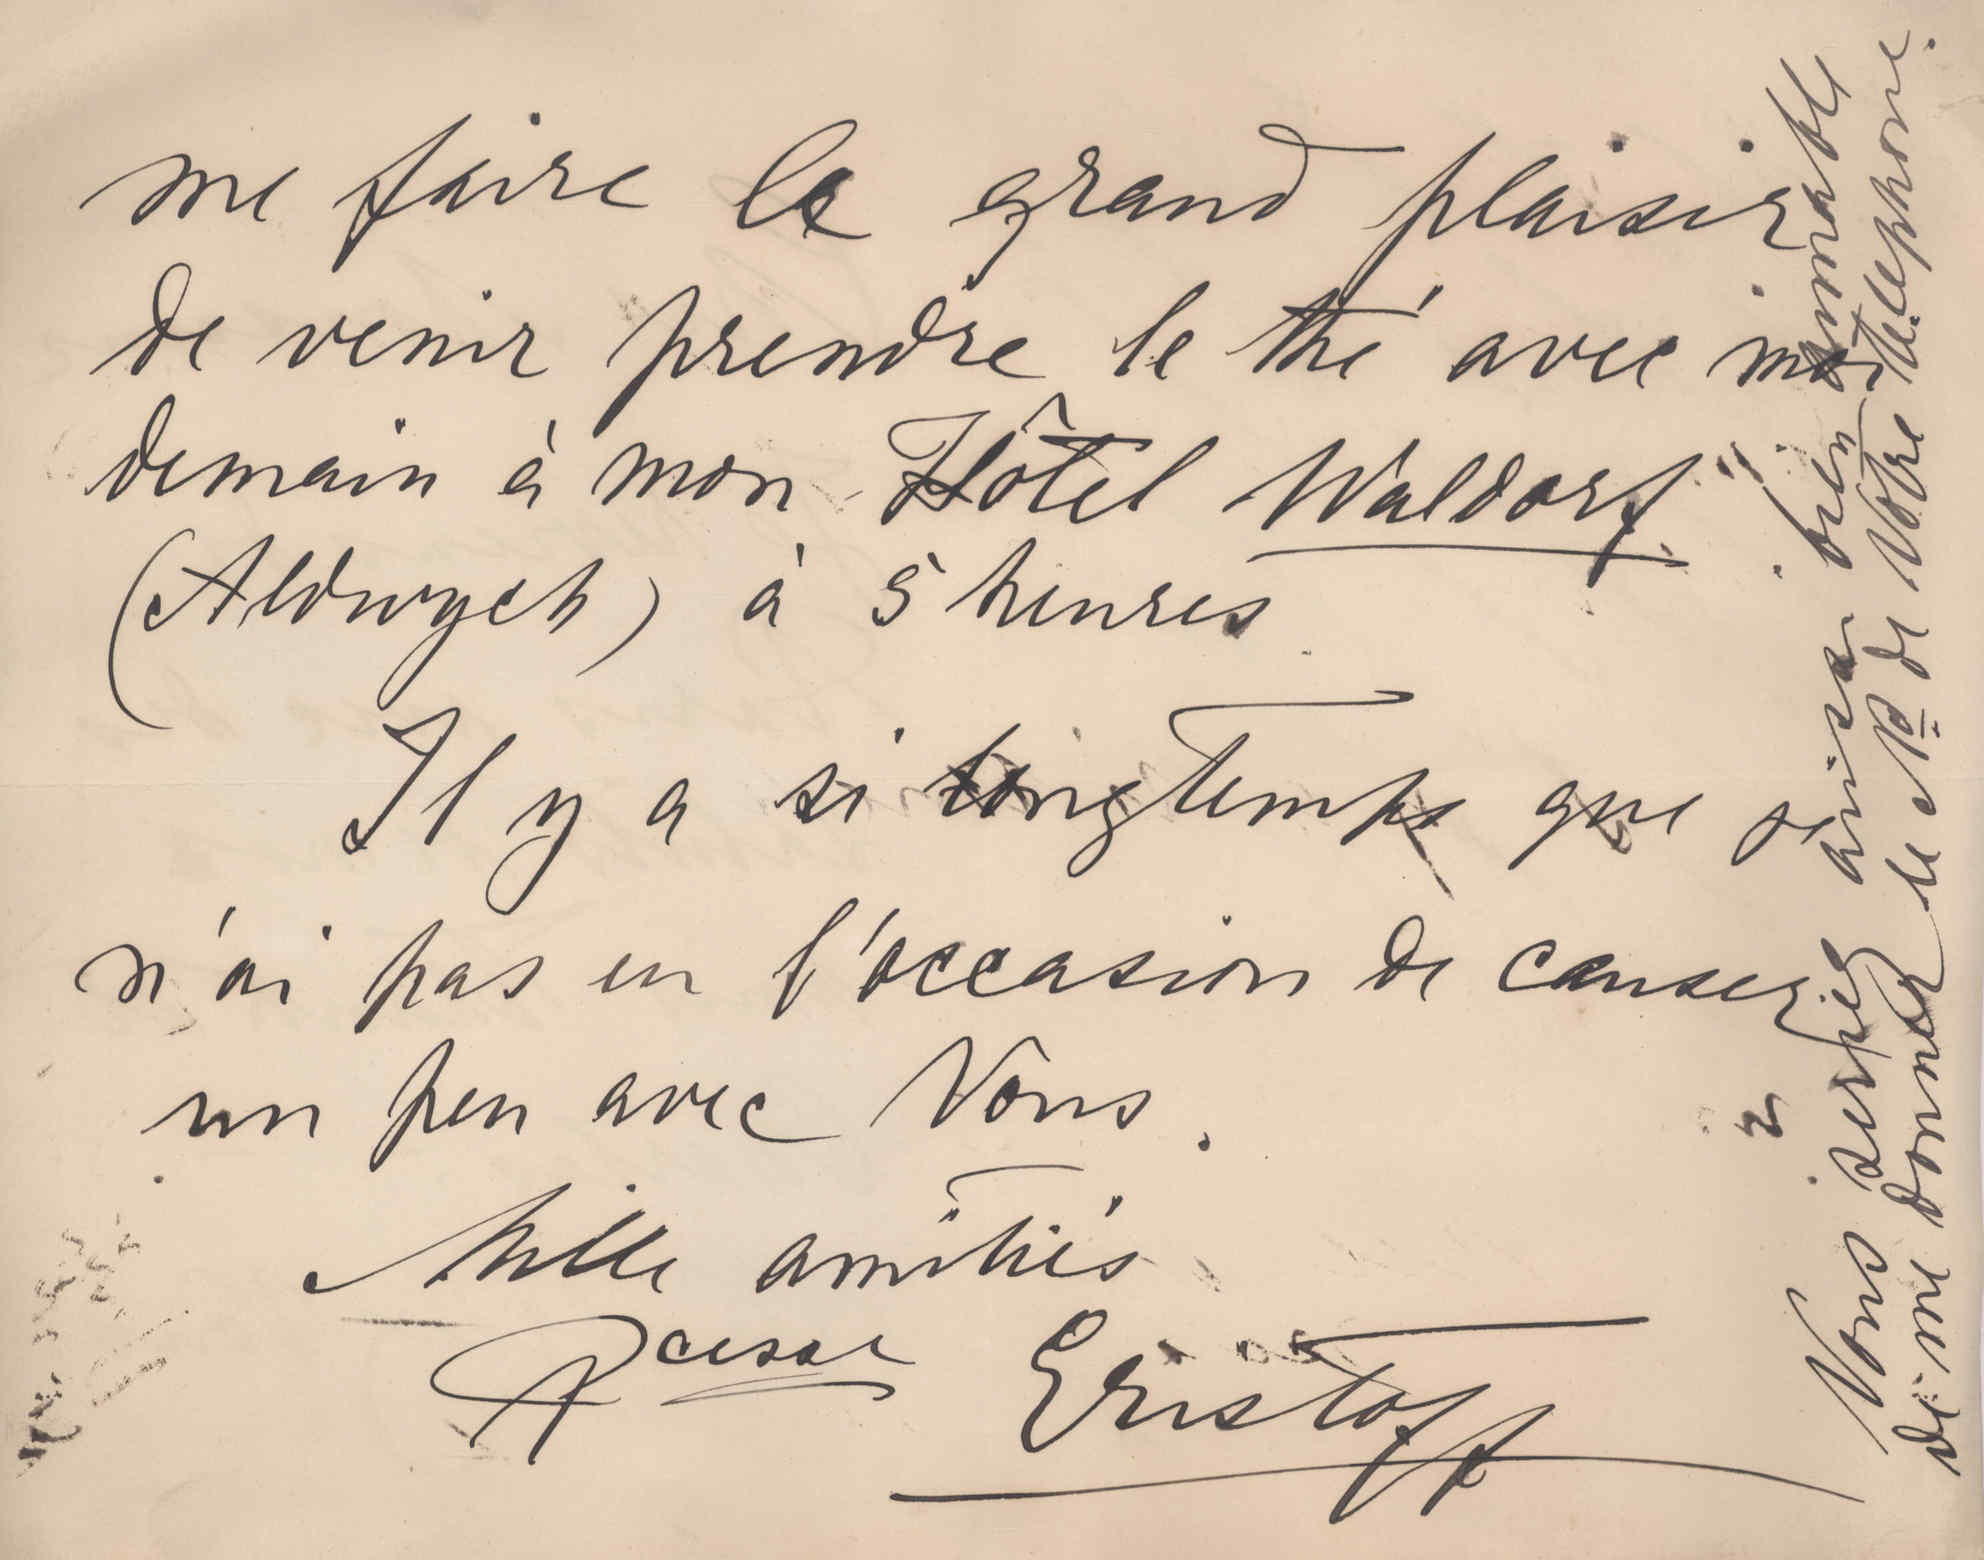 me faire le grand plaisir
de venir prendre le thé avec moi
demain à mon Hôtel Waldorf
(Aldwych) à 5 heures
Il y a si longtemps que je
n'ai pas eu l'occasion de causer
un peu avec Vous.
Mille amitiés
Pcesse Eristoff
Vous seriez aussi bien aimable
de me donner le No de Votre téléphone.